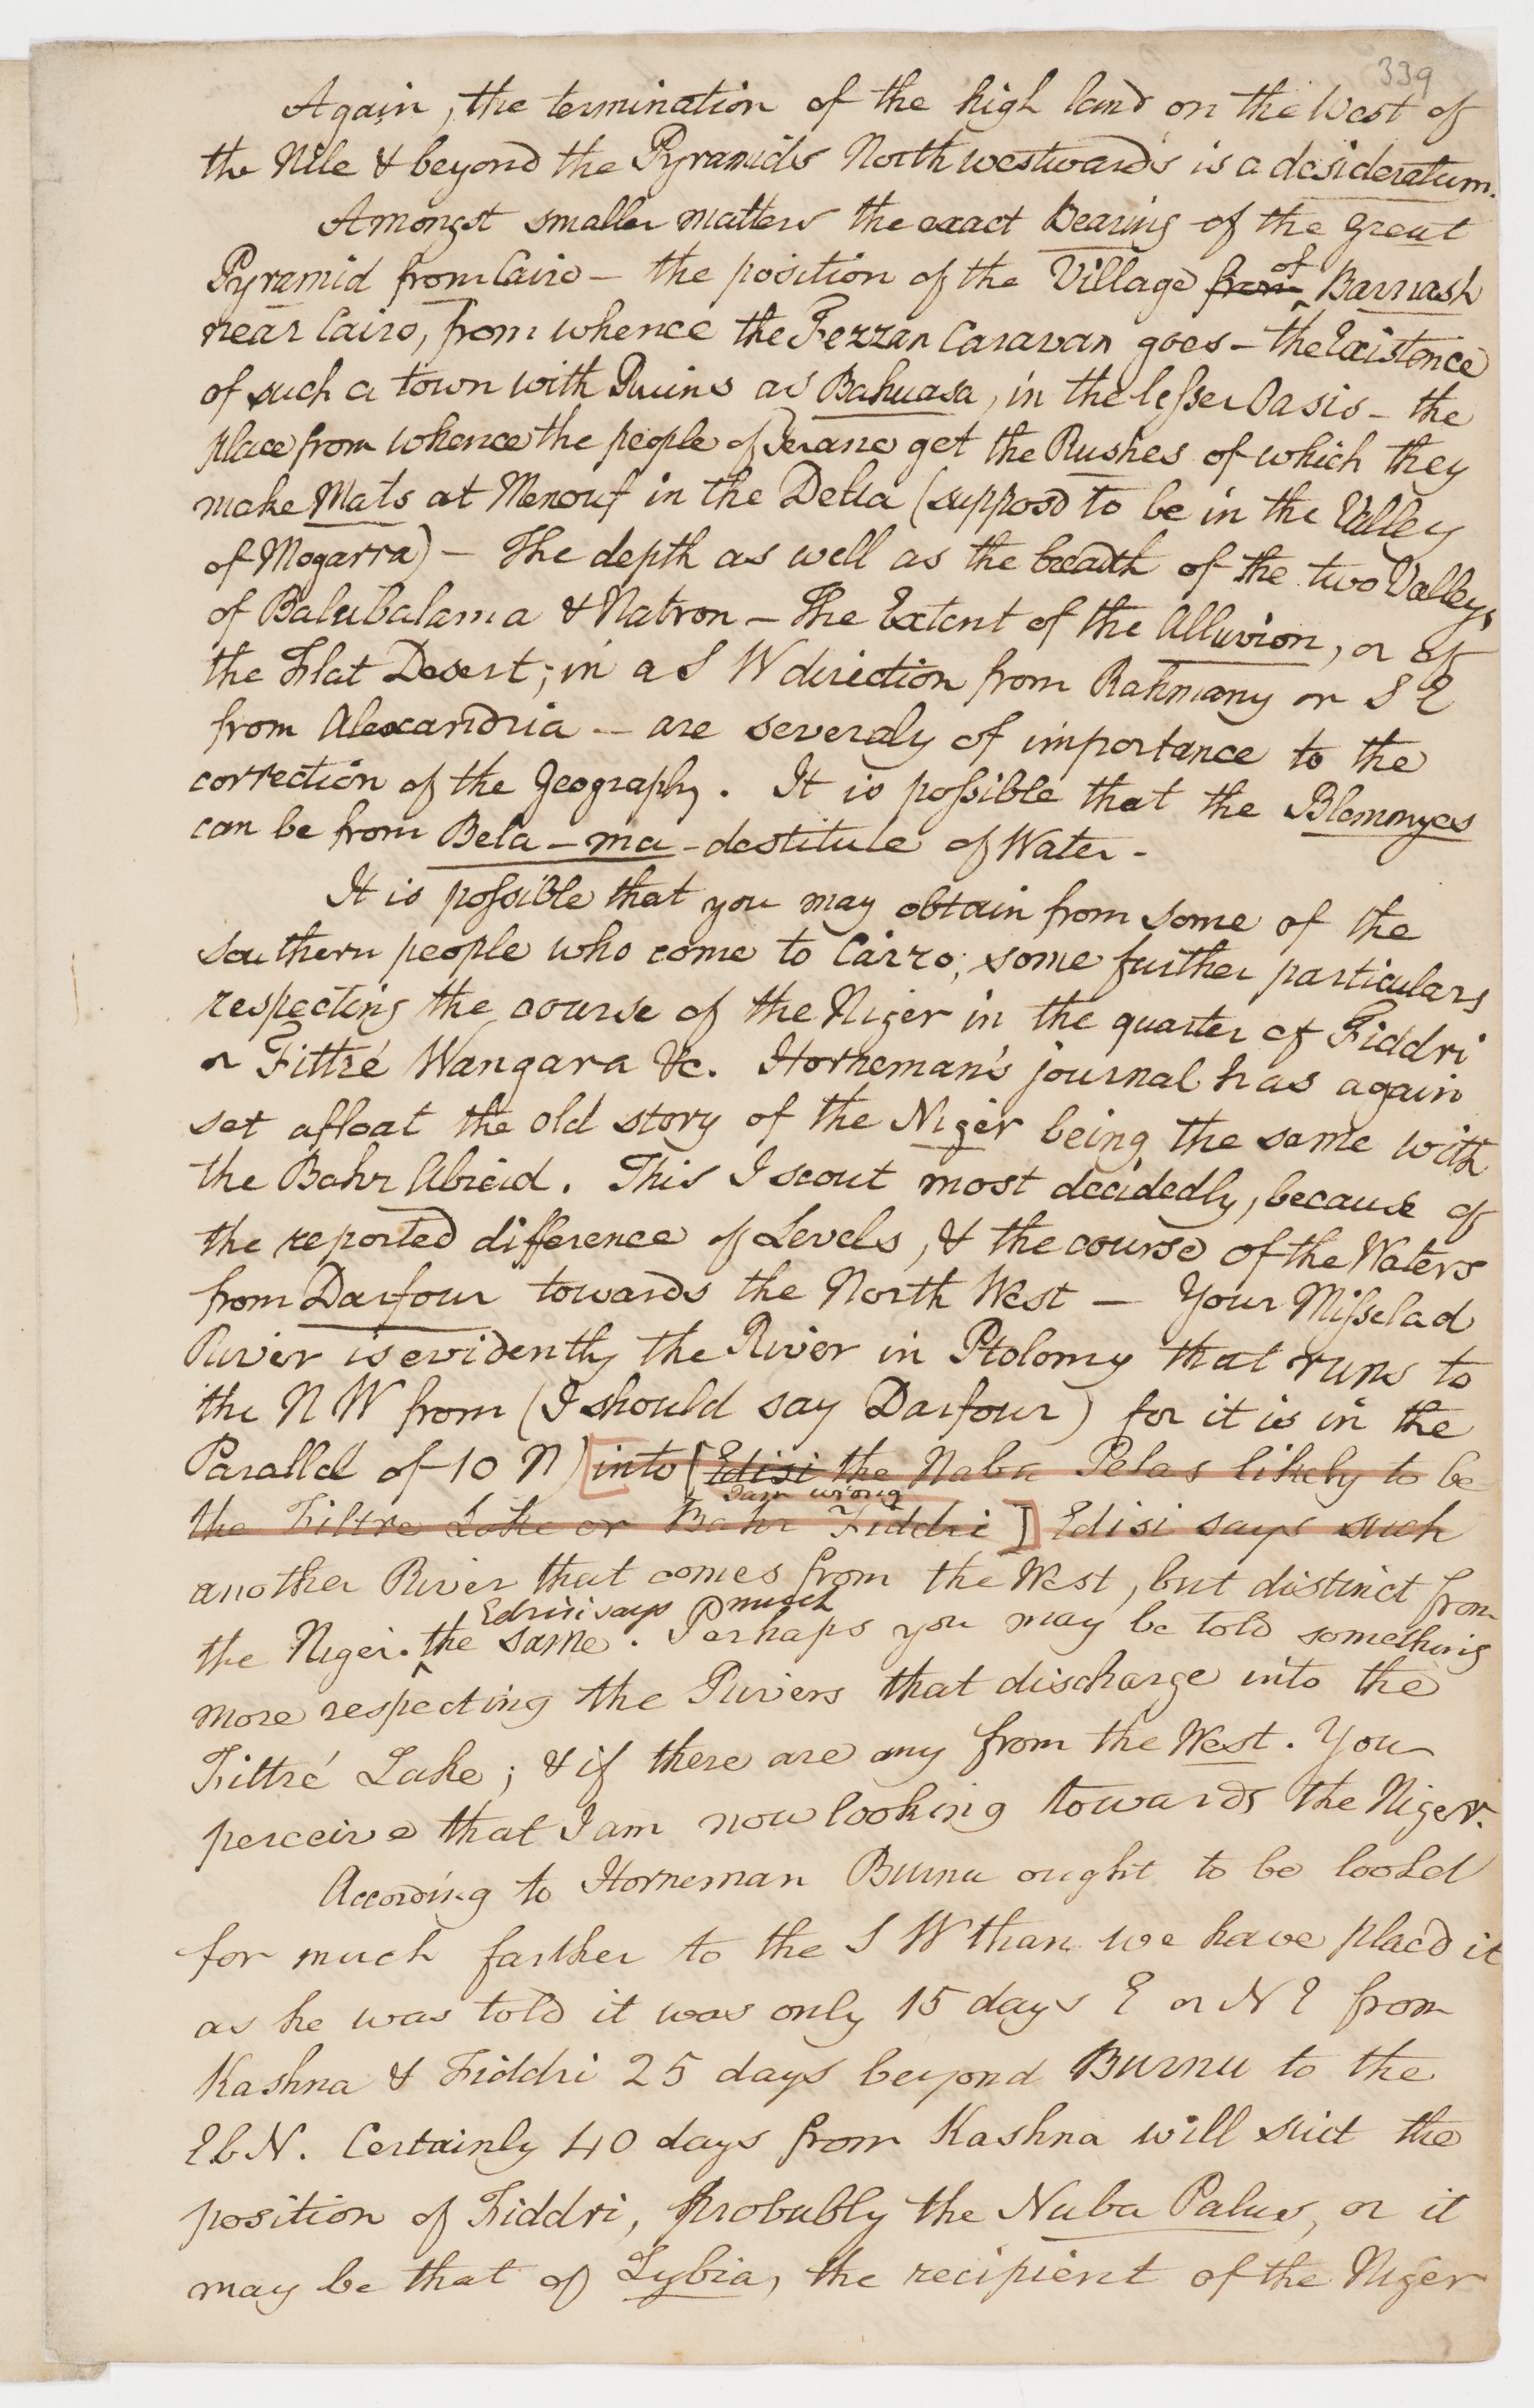 339
Again, the termination of the high land on the West of
the Nile & beyond the Pyramids North westwards is a desideratum.
Amongst smaller matters the exact bearing of the great
Pyramid from Cairo – the position of the Village from of Barnash
near Cairo, from whence the Fezzan Caravan goes – the Existence
of such a town with Ruins as Bahuasa, in the lesser Oasis – the
place from whence the people of get the Rushes of which they
make Mats at Menouf in the Delta (supposd to be in the Valley
of Mogarra) – The depth as well as the breadth of the two Valleys
of Balubalama & Natron – The Extent of the Alluvion, or of
the Flat Desert; in a S W direction from Rahmany or S E
from Alexandria – are severaly of importance to the
correction of the Geography. It is possible that the Blemmyes
can be from Bela – ma – destitute of Water –
It is possible that you may obtain from some of the
southern people who come to Cairo; some further particulars
respecting the course of the Niger in the quarter of Fiddri
or Fittré Wangara &c. Horneman's journal has again
set afloat the old story of the Niger being the same with
the Bahr Abieid. This I scout most decidedly, because of
the reported difference of Levels, & the course of the Waters
from Darfour towards the North West – Your Misselad
River is evidently the River in Ptolomy that runs to
the N W from (I should say Darfour) for it is in the
Parallel of 10 N) [into [Edisi the Naba Pelas likely to be
I am wrong
the Fittre Lake or Bahr Fiddri] Edisi says such
another River that comes from the West, but distinct from
Edrisi says much
the Niger. the same. Perhaps you may be told something
more respecting the Rivers that discharge into the
Fittré Lake; & if there are any from the West. You
perceive that I am now looking towards the Niger.
According to Horneman Burnu ought to be lookd
for much farther to the S W than we have placd it
as he was told it was only 15 days E or N E from
Kashna & Fiddri 25 days beyond Burnu to the
E b N. Certainly 40 days from Kashna will suit the
position of Fiddri, probably the Nuba Palus, or it
may be that of Lybia, the recipient of the Niger